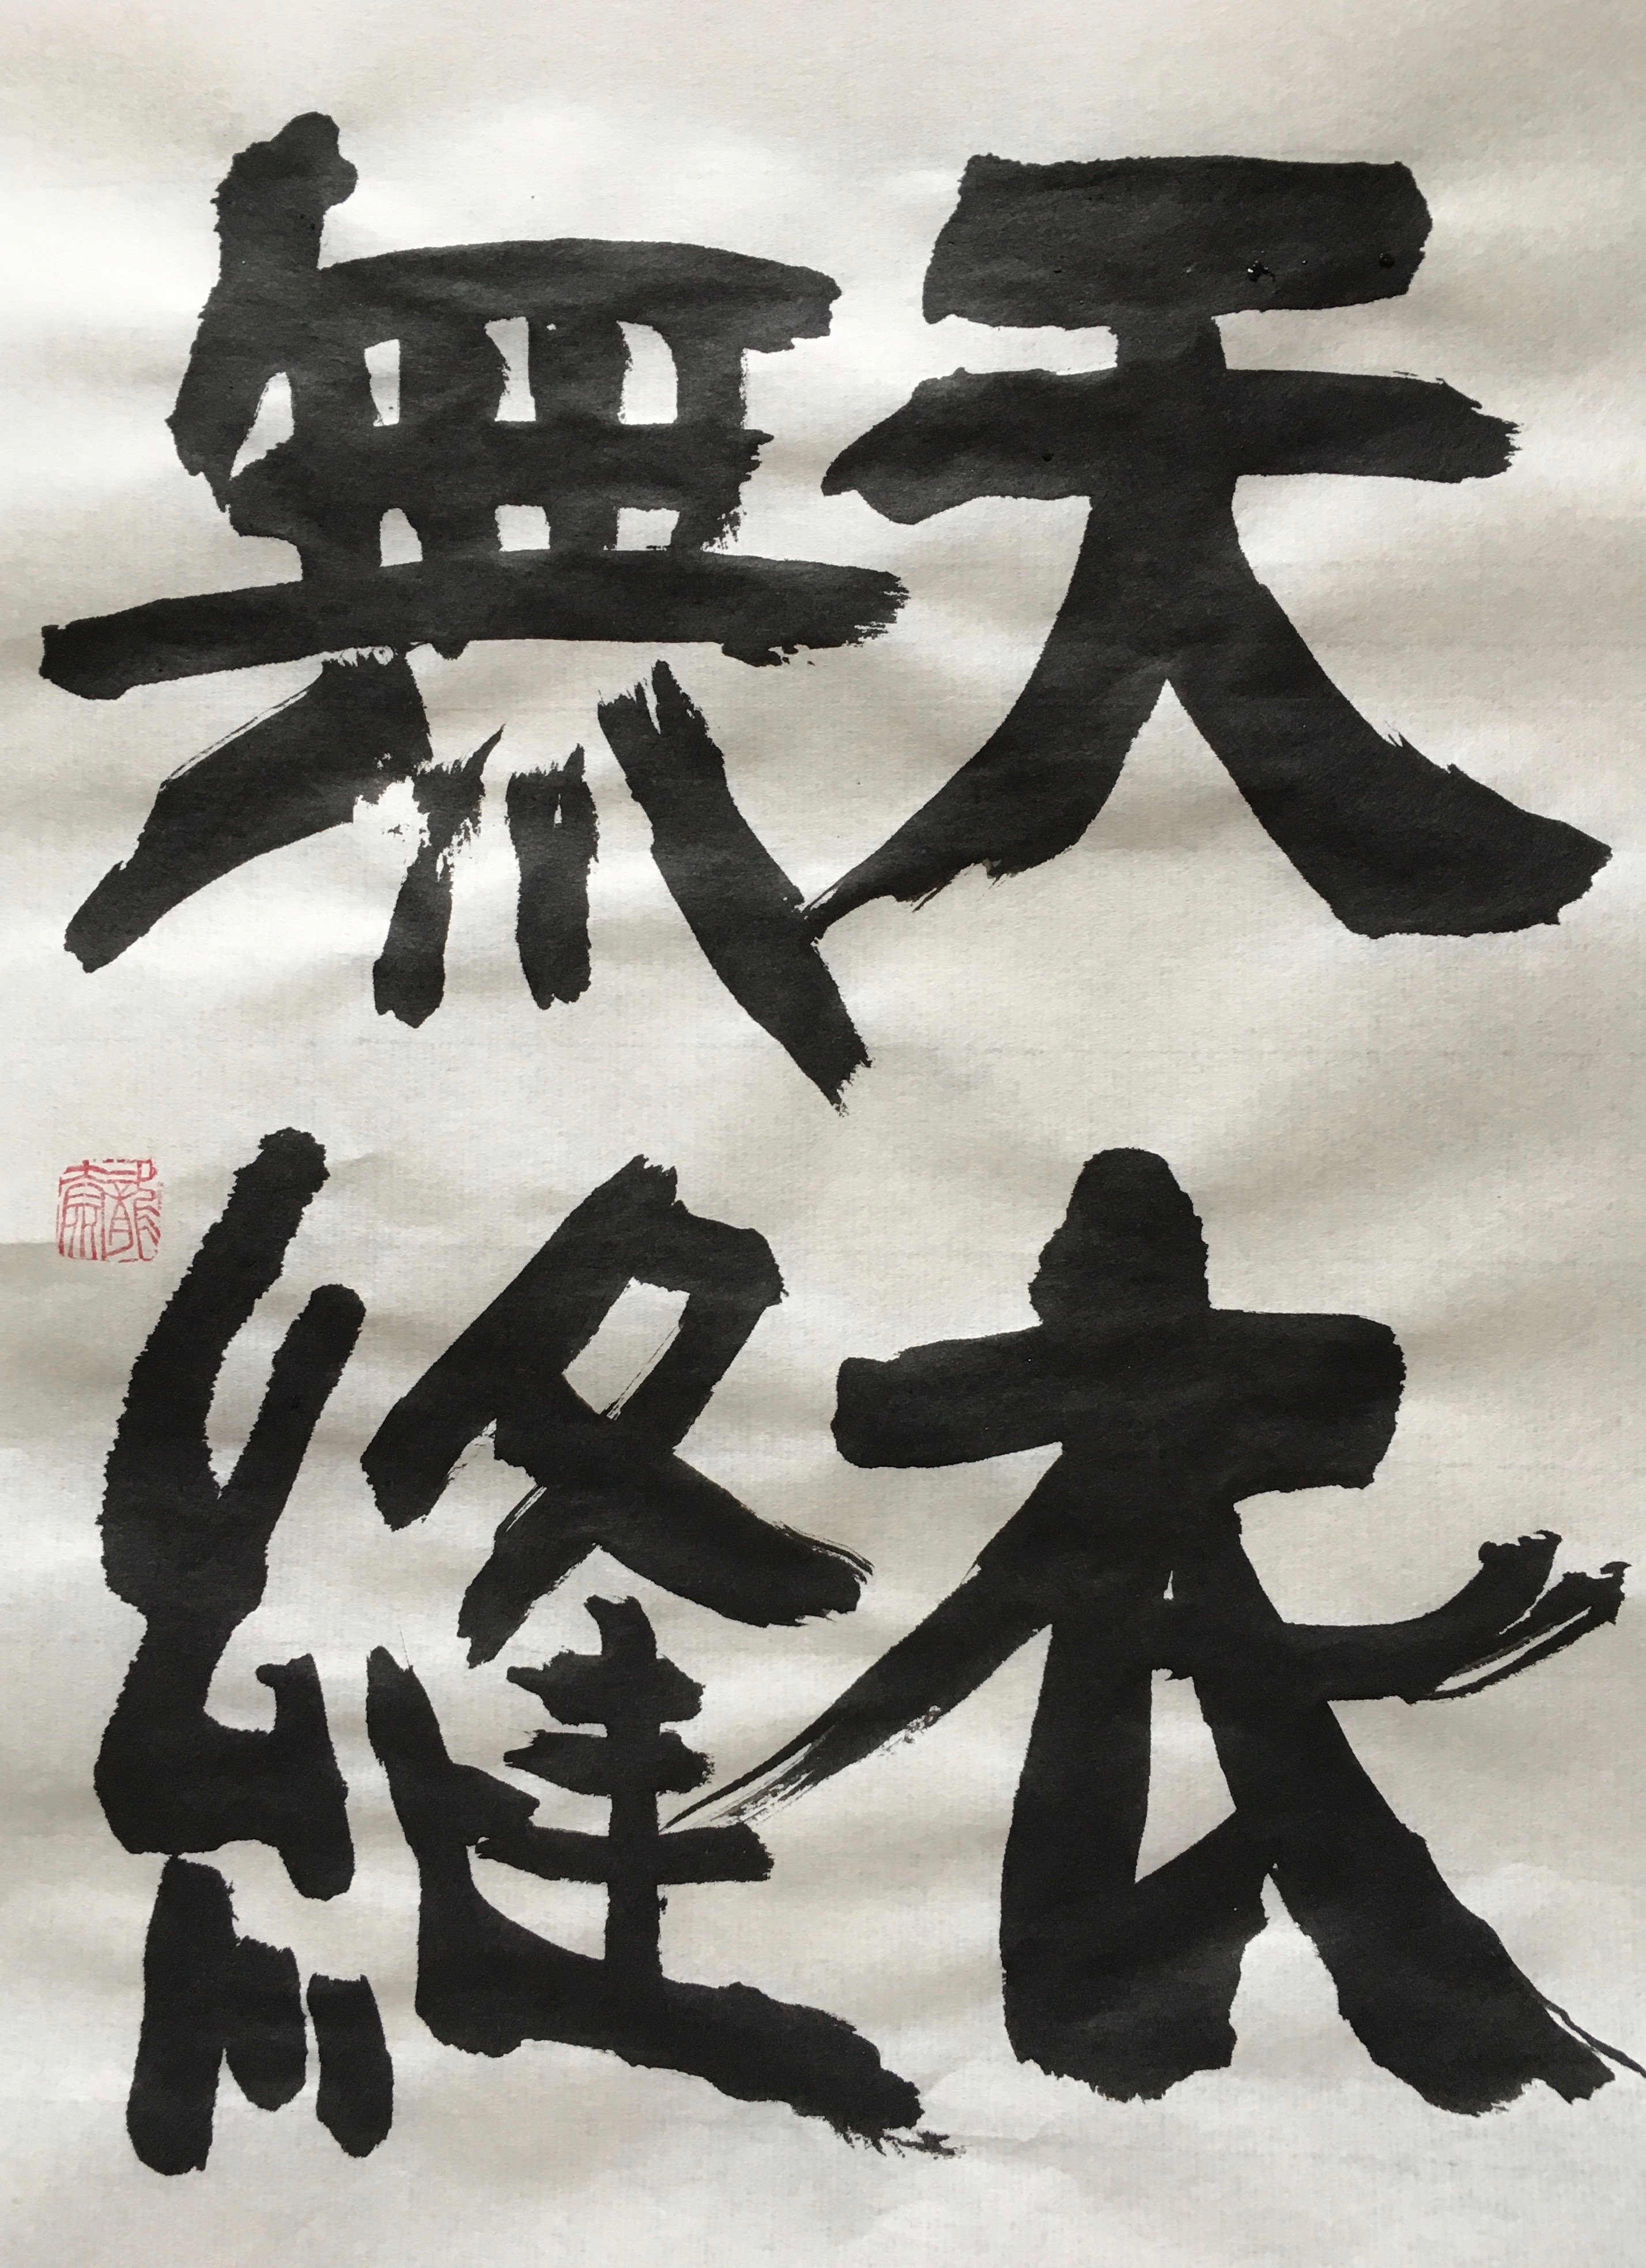 天衣
無縫